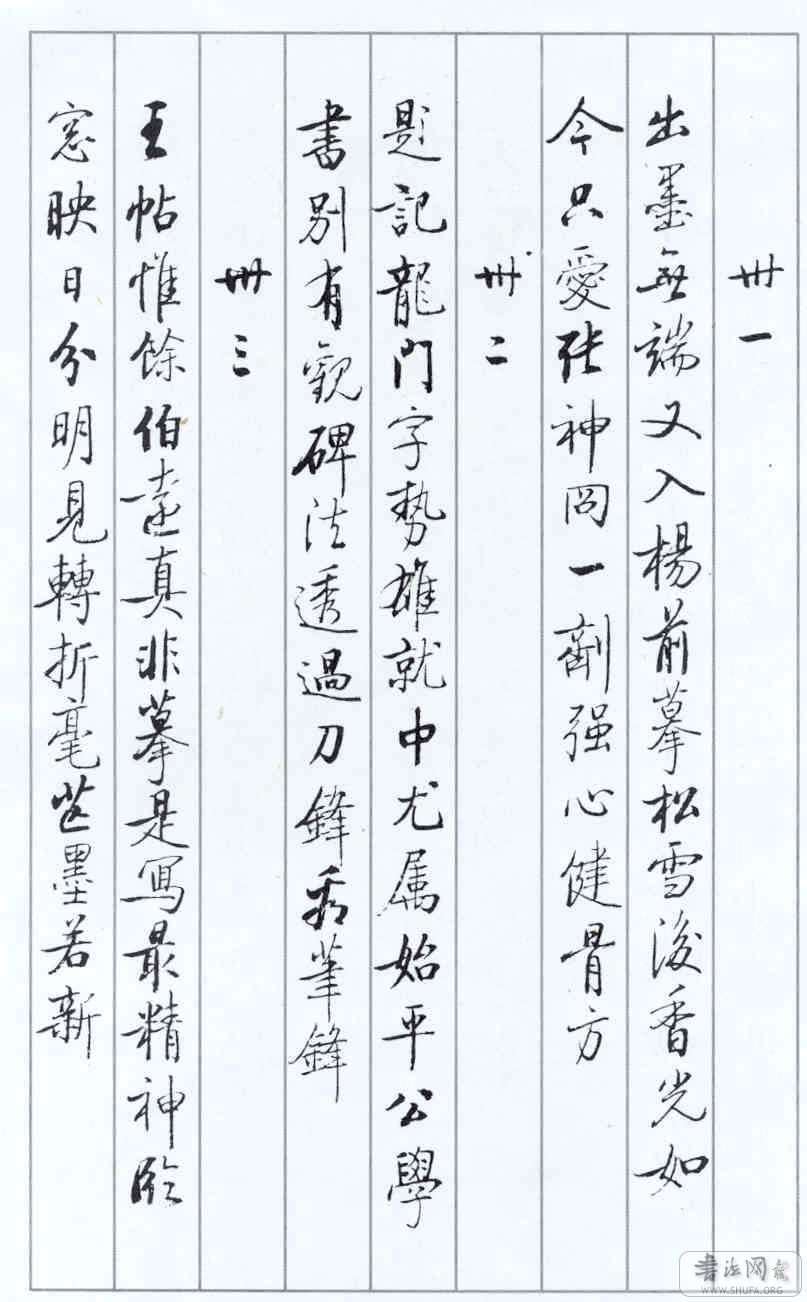 卌一
出墨無端又入楊前摹松雪後香光如
今只愛張神冏一劑强心健骨方
卌二
題記龍門字勢雄就中尤属始平公學
書別有觀碑法透過刀鋒看筆鋒
卌三
王帖惟餘伯遠真非摹是寫最精神臨
窓映日分明見轉折毫芒墨若新
書法网
WWW.SHUFA.ORG